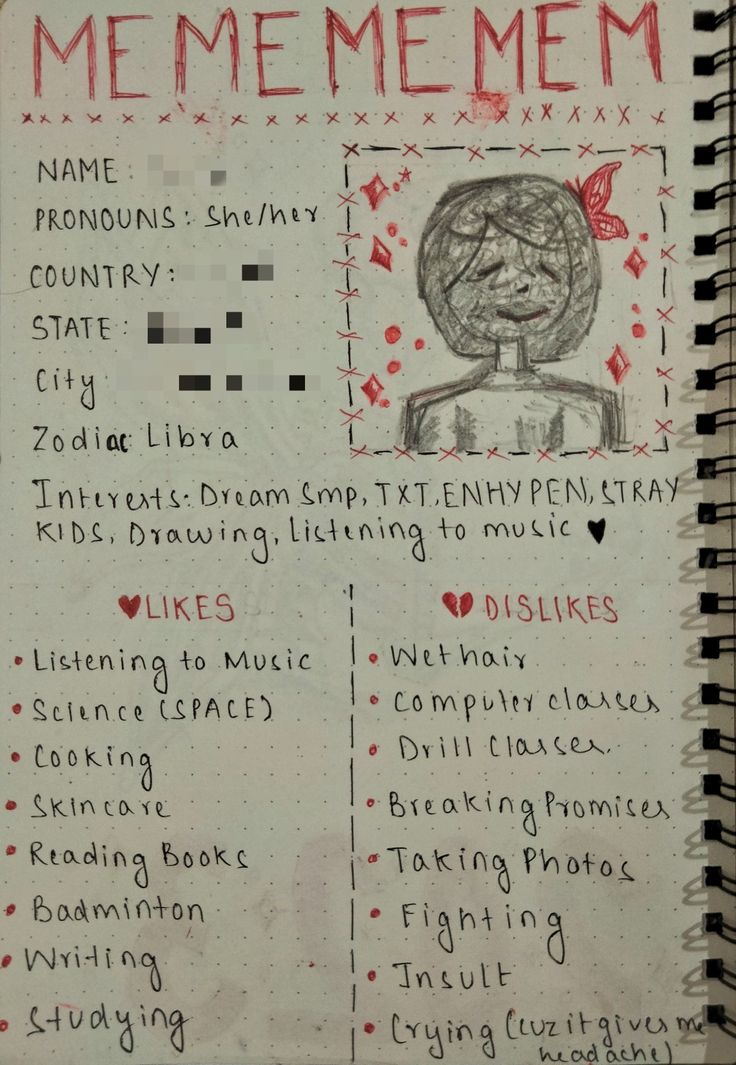 ME ME ME MEM
NAME:
PRONOUNS: She/her
COUNTRY:
STATE:
City
Zodiac: Libra
Interests: Dream Smp, TXT, ENHYPEN, STRAY
KIDS, Drawing, Listening to music
LIKES
• Listening to Music
• Science (SPACE)
• Cooking
• Skincare
• Reading Books
• Badminton
• Writing
• Studying
DISLIKES
• Wet hair
• Computer classes
• Drill Classes.
• Breaking Promises
• Taking Photos
• Fighting
• Insult
• Crying (cuz it gives me
headache)